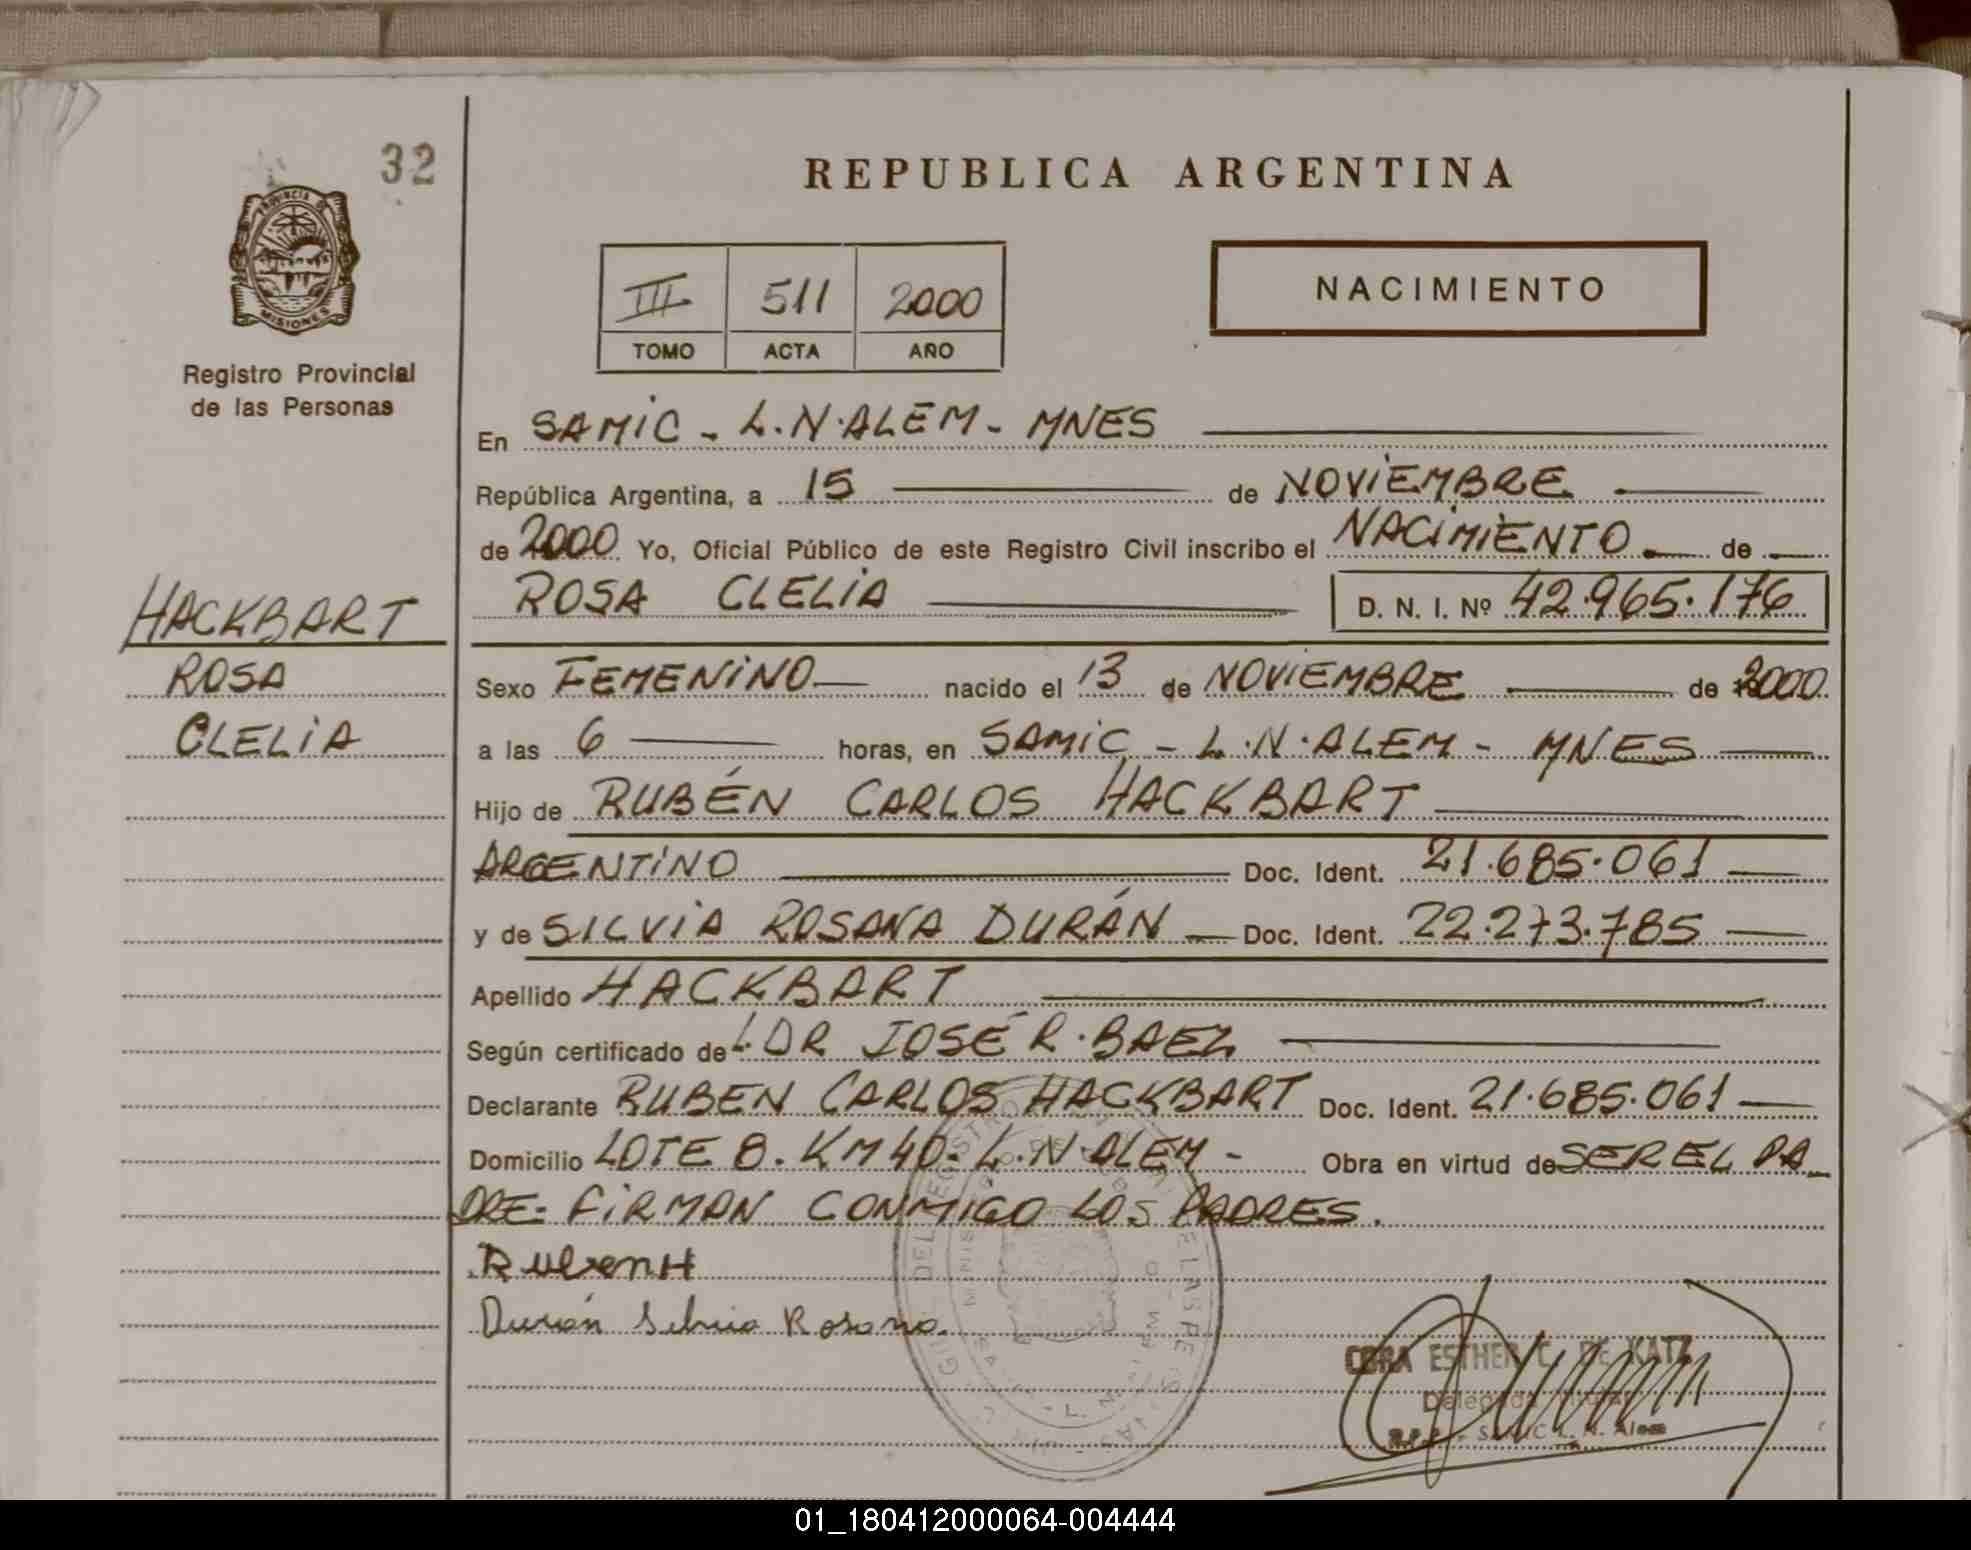 32
PROVINCIA DE
MISIONES
Registro Provincial
de las Personas
HACKBART
ROSA
CLELIA
REPUBLICA ARGENTINA
III 511 2000
TOMO ACTA AÑO
NACIMIENTO
En SAMIC - L.N.ALEM - MNES
República Argentina, a 15 de NOVIEMBRE
de 2000 Yo, Oficial Público de este Registro Civil inscribo el NACIMIENTO de
ROSA CLELIA D. N. I. Nº 42.965.176
Sexo FEMENINO nacido el 13 de NOVIEMBRE de 2000
a las 6 horas, en SAMIC - L.N.ALEM - MNES
Hijo de RUBÉN CARLOS HACKBART
ARGENTINO Doc. Ident. 21.685.061
y de SILVIA ROSANA DURÁN Doc. Ident. 22.273.785
Apellido HACKBART
Según certificado de L.DR JOSÉ R. BAEZ
Declarante RUBEN CARLOS HACKBART Doc. Ident. 21.685.061
Domicilio LOTE 8. KM 40. L.N.ALEM - Obra en virtud de SER EL PA
DRE- FIRMAN CONMIGO LOS PADRES.
Ruben H
Durán Silvia Rosana.
ESTHER C. DE KATZ
Delegada Titular
R.P.P. - SAMIC L. N. Alem
01_180412000064-004444